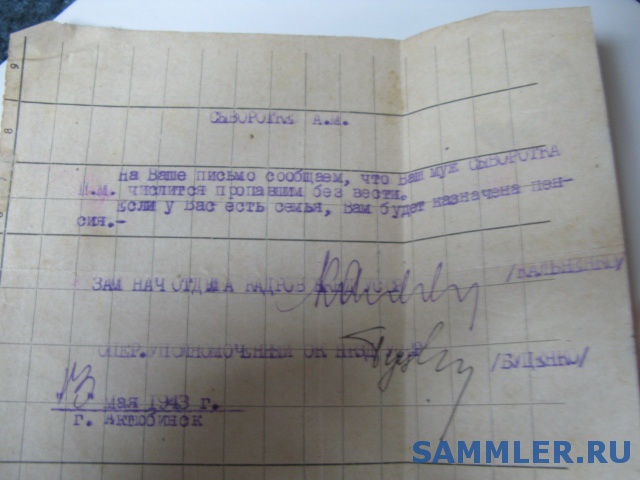 СЫВОРОТКА А.М.
На Ваше письмо сообщаем, что Ваш муж СЫВОРОТКА
И.М. числится пропавшим без вести.
Если у Вас есть семья, Вам будет назначена пен-
сия.-
ЗАМ НАЧ ОТДЕЛА КАДРОВ
ОПЕР.УПОЛНОМОЧЕННЫЙ ОК НКВД
/БУЦЕНКО/
"13" мая 1943 г.
г. Актюбинск
SAMMLER.RU
9
8